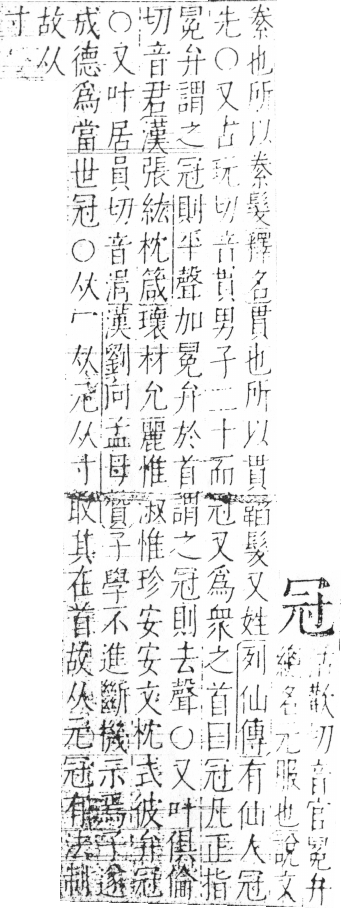 冠
古歡切音官冕弁
總名元服也說文
絭也所以絭髮釋名貫也所以貫韜髮又姓列仙傳有仙人冠
先〇又古玩切音貫男子二十而冠又爲衆之首曰冠凡正指
冕弁謂之冠則平聲加冕弁於首謂之冠則去聲〇又叶俱倫
切音君漢張紘枕箴瓌材允麗惟淑惟珍安安文枕式彼弁冠
〇又叶居員切音涓漢劉向孟母贊子學不進斷機示焉子遂
成德爲當世冠〇从冖从元从寸取其在首故从元冠有法制
故从
寸